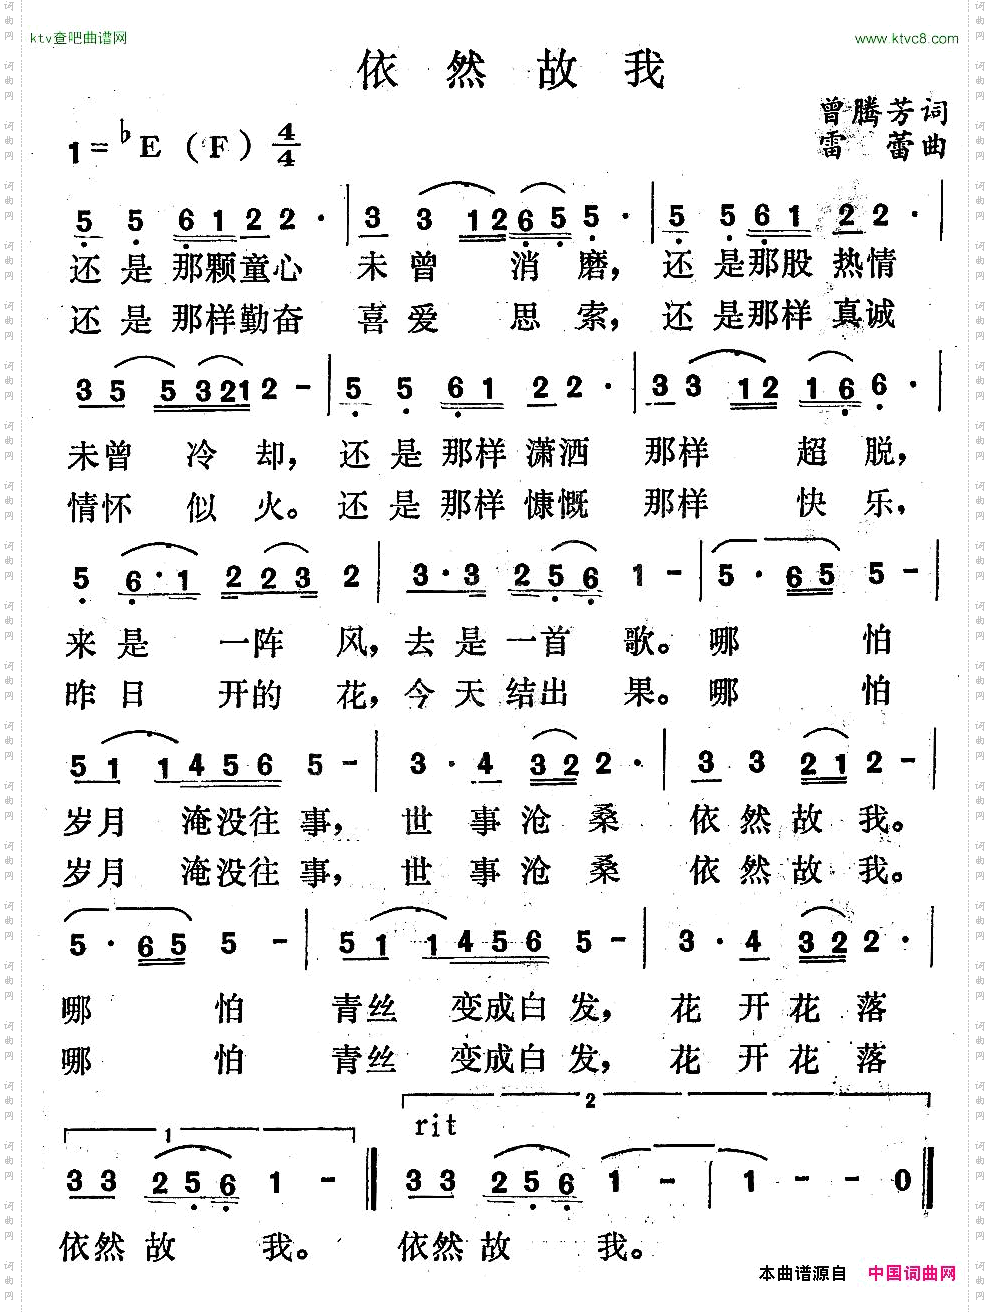 ktv查吧曲谱网
www.ktvc8.com
依然故我
曾腾芳词
1=♭E(F)4/4
雷蕾曲
5 5 6 1 2 2 · | 3 3 1 2 6 5 5 · | 5 5 6 1 2 2 · |
还是那颗童心 未曾 消磨, 还是那股热情
还是那样勤奋 喜爱 思索, 还是那样真诚
3 5 5 3 2 1 2 - | 5 5 6 1 2 2 · | 3 3 1 2 1 6 6 · |
未曾 冷却, 还是那样潇洒 那样 超脱,
情怀 似火。还是那样慷慨 那样 快乐,
5 6 · 1 2 2 3 2 | 3 · 3 2 5 6 1 - | 5 · 6 5 5 - |
来是 一阵 风, 去是一首 歌。哪 怕
昨日 开的 花, 今天结出 果。哪 怕
5 1 1 4 5 6 5 - | 3 · 4 3 2 2 · | 3 3 2 1 2 - |
岁月 淹没往事, 世事沧桑 依然故我。
岁月 淹没往事, 世事沧桑 依然故我。
5 · 6 5 5 - | 5 1 1 4 5 6 5 - | 3 · 4 3 2 2 · |
哪 怕 青丝 变成白发, 花开花落
哪 怕 青丝 变成白发, 花开花落
1 2
rit
3 3 2 5 6 1 - ‖ 3 3 2 5 6 1 - | 1 - - 0 ‖
依然故 我。 依然故 我。
本曲谱源自 中国词曲网